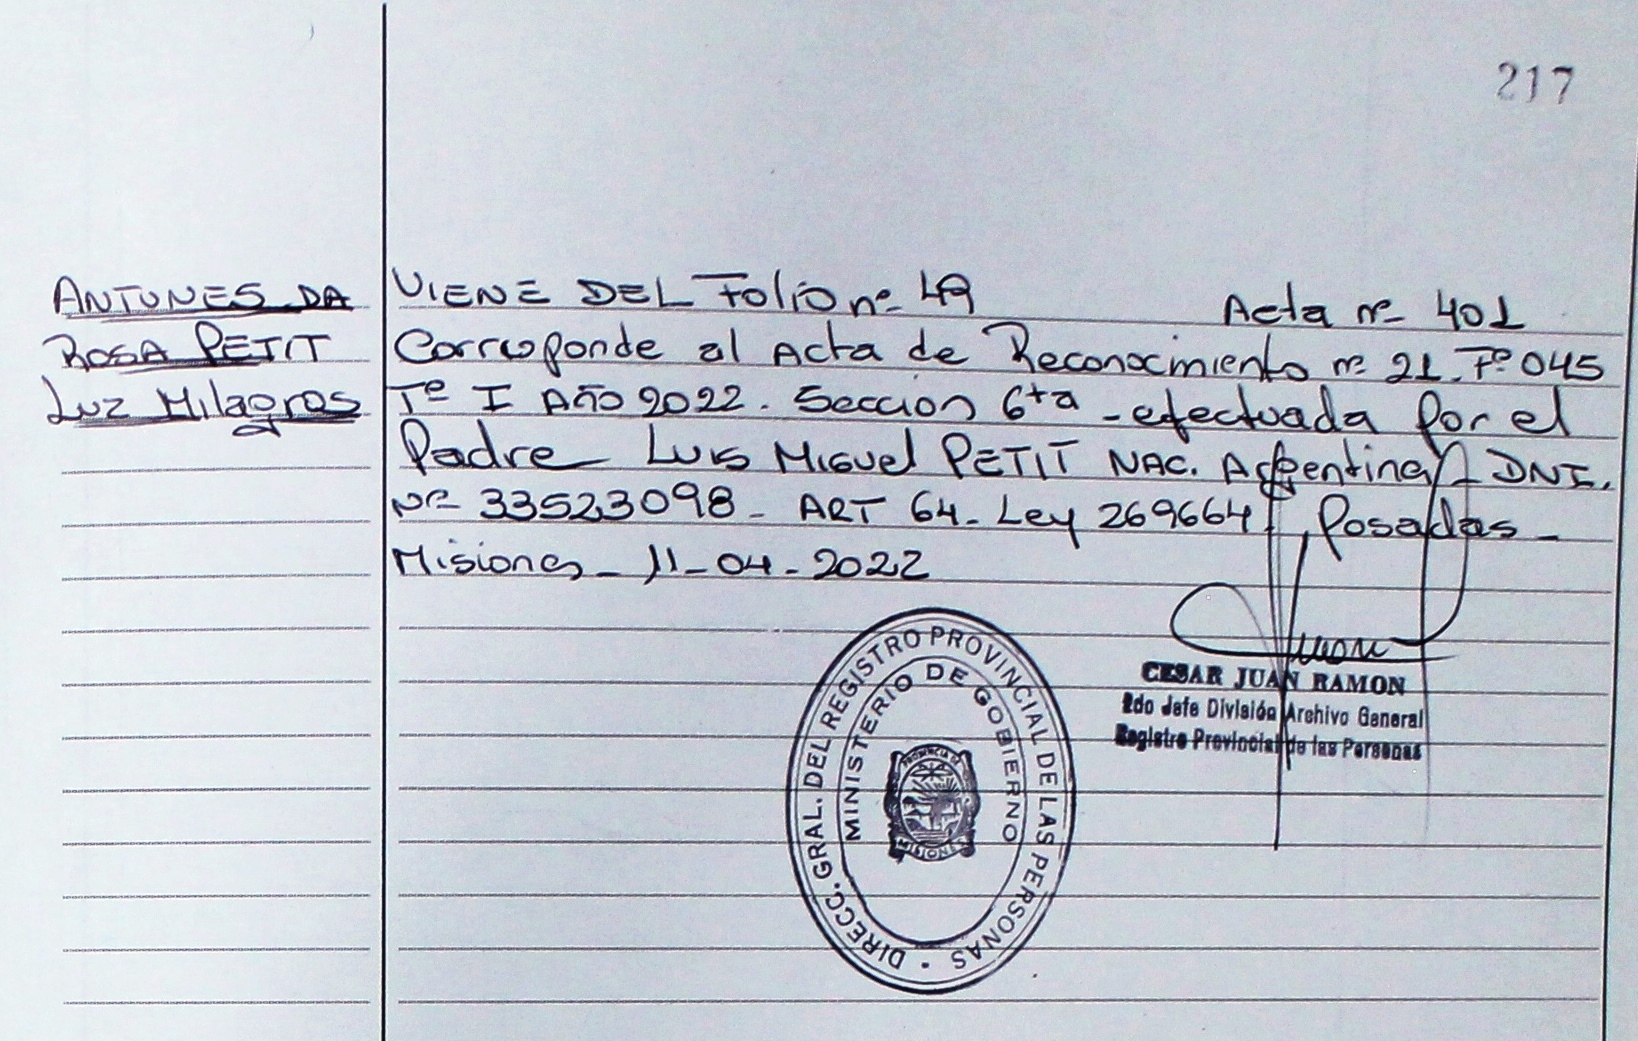 217
ANTUNES DA
ROSA PETIT
Luz Milagros
VIENE DEL Folio nº 49
Acta nº 401
Corresponde al Acta de Reconocimiento nº 21. Fº 045
Tº I Año 2022. Sección 6ta - efectuada por el
Padre Luis Miguel PETIT NAC. Argentina - DNI.
Nº 33523098 - ART 64 - Ley 269664. Posadas -
Misiones - 11-04-2022
CESAR JUAN RAMON
2do Jefe División Archivo General
Registro Provincial de las Personas
DIRECC. GRAL. DEL REGISTRO PROVINCIAL DE LAS PERSONAS
MINISTERIO DE GOBIERNO
PROVINCIA DE
MISIONES